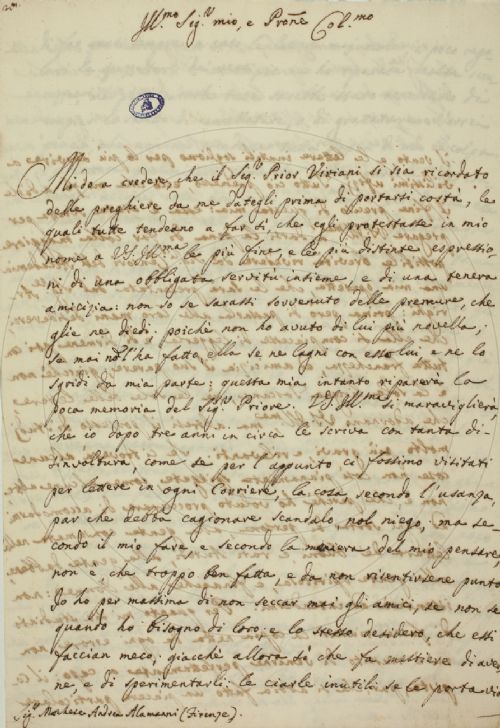 Ill.mo Sig.r mio, e Prone Col.mo
Mi do a credere, che il Sig.r Prior Viviani si sia ricordato
delle preghiere da me dategli prima di portarsi costà, le
quali tutte tendeano a far sì, che egli protestasse in mio
nome a V.S. Ill.ma le più fine, e le più distinte espressio-
ni di una obbligata servitù insieme, e di una tenera
amicizia: non so se sarassi sovvenuto delle premure, che
glie ne diedi; poichè non ho avuto di lui più novella;
se mai nol l'ha fatto, ella se ne lagni con esso lui, e ne lo
sgridi da mia parte: questa mia intanto riparerà la
poca memoria del Sig.r Priore. V.S. Ill.ma si maraviglierà,
che io dopo tre anni in circa le scriva con tanta di-
sinvoltura, come se per l'appunto ci fossimo visitati
per lettere in ogni Corriere, la cosa secondo l'usanza
par che debba cagionare scandalo, nol niego, ma se-
condo il mio fare, e secondo la maniera del mio pensare,
non è, che troppo ben fatta, e da non risentirsene punto
Io ho per massima di non seccar mai gli amici, se non se
quando ho bisogno di loro; e lo stesso desidero, che essi
faccian meco; giacchè allora sì che fa mestiere di aver-
ne, e di sperimentarli: le ciarle inutili se le porta via
Sig.r Marchese Andrea Alamanni (Firenze).